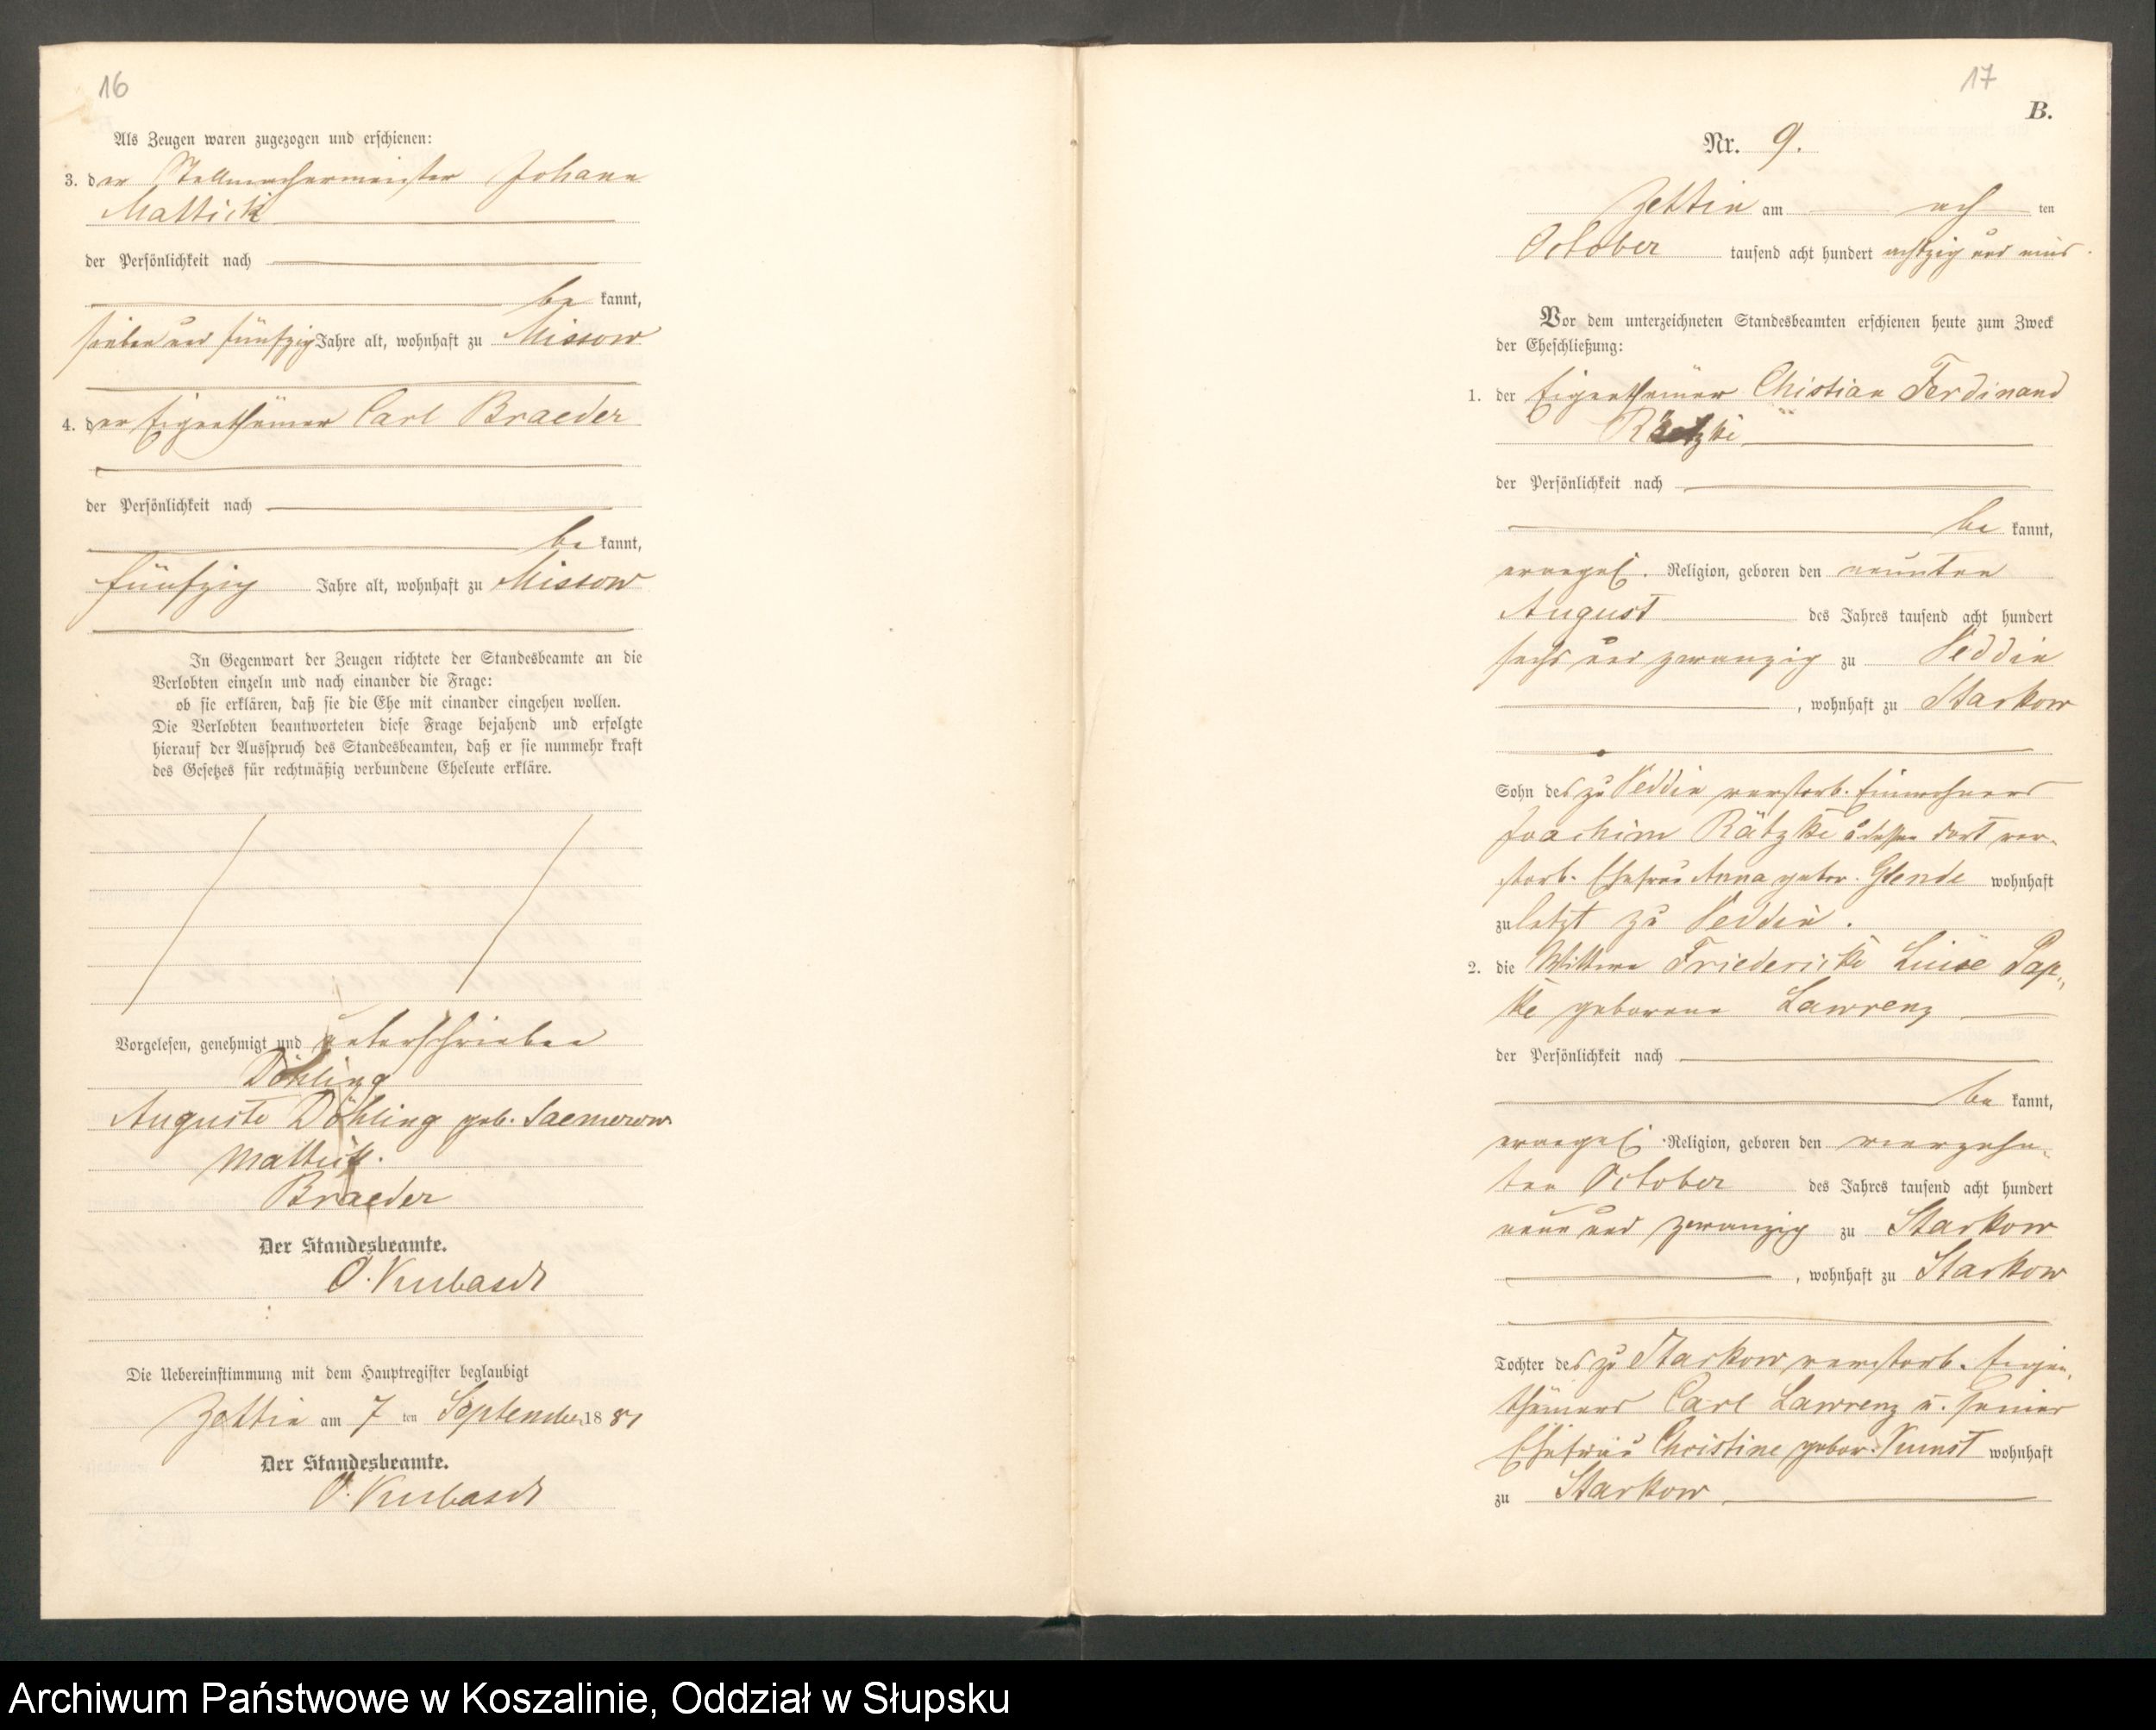 16
Als Zeugen waren zugezogen und erschienen:
3. der Stellmachermeister Johann
Mattick
der Persönlichkeit nach
be kannt,
sieben und fünfzig Jahre alt, wohnhaft zu Missow
4. der Eigenthümer Carl Braeder
der Persönlichkeit nach
be kannt,
fünfzig Jahre alt, wohnhaft zu Missow
In Gegenwart der Zeugen richtete der Standesbeamte an die
Verlobten einzeln und nach einander die Frage:
ob sie erklären, daß sie die Ehe mit einander eingehen wollen.
Die Verlobten beantworteten diese Frage bejahend und erfolgte
hierauf der Ausspruch des Standesbeamten, daß er sie nunmehr kraft
des Gesetzes für rechtmäßig verbundene Eheleute erkläre.
Vorgelesen, genehmigt und unterschrieben
Döhling
Auguste Döhling geb.
Mattick.
Braeder
Der Standesbeamte.
O. Kubasch
Die Uebereinstimmung mit dem Hauptregister beglaubigt
Zettin am 7 ten September 18 81
Der Standesbeamte.
O. Kubasch
17
B.
Nr. 9.
Zettin am ach ten
October tausend acht hundert achtzig und eins.
Vor dem unterzeichneten Standesbeamten erschienen heute zum Zweck
der Eheschließung:
1. der Eigenthümer Chistian Ferdinand
Rätzke
der Persönlichkeit nach
be kannt,
evangel. Religion, geboren den neunten
August des Jahres tausend acht hundert
sechs und zwanzig zu Veddin
, wohnhaft zu Starkow
Sohn des zu Veddin verstorb. Einwohners
Joachim Rätzke u dessen dort ver-
storb. Ehefrau Anna gebor. Glende wohnhaft
zuletzt zu Veddin.
2. die Wittwe Friedericke Luise Pap-
ke geborene Lawrenz
der Persönlichkeit nach
be kannt,
evangel. Religion, geboren den vierzehn-
ten October des Jahres tausend acht hundert
neun und zwanzig zu Starkow
, wohnhaft zu Starkow
Tochter des zu Starkow verstorb. Eigen-
thümers Carl Lawrenz u. seiner
Ehefrau Christine gebor. Kunst wohnhaft
zu Starkow
Archiwum Państwowe w Koszalinie, Oddział w Słupsku